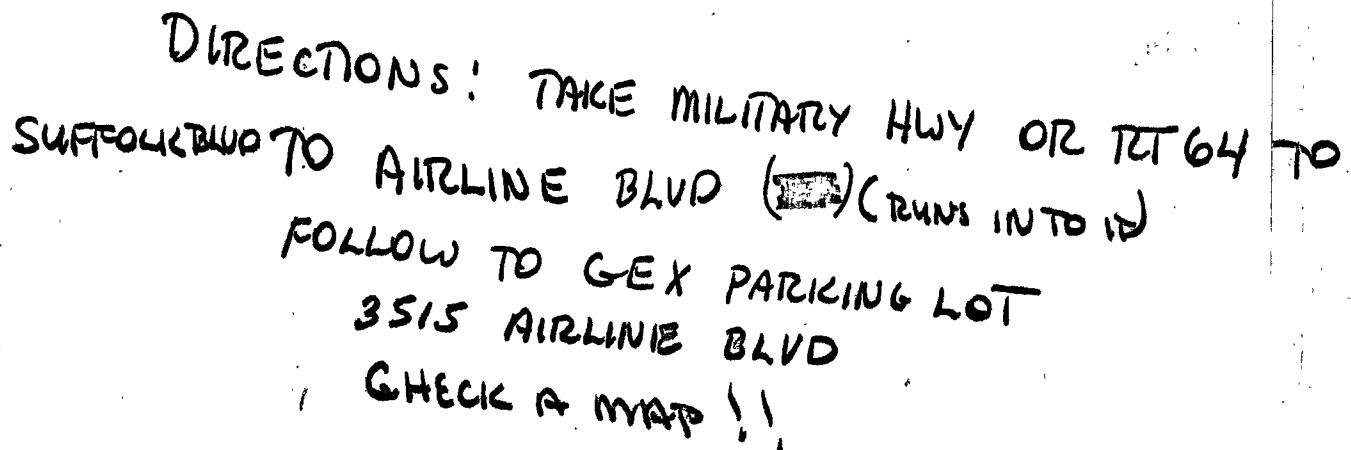 DIRECTIONS: TAKE MILITARY HWY OR RT 64 TO
SUFFOLK BLVD TO AIRLINE BLVD ( ) (RUNS INTO IT)
FOLLOW TO GEX PARKING LOT
3515 AIRLINE BLVD
CHECK A MAP !!